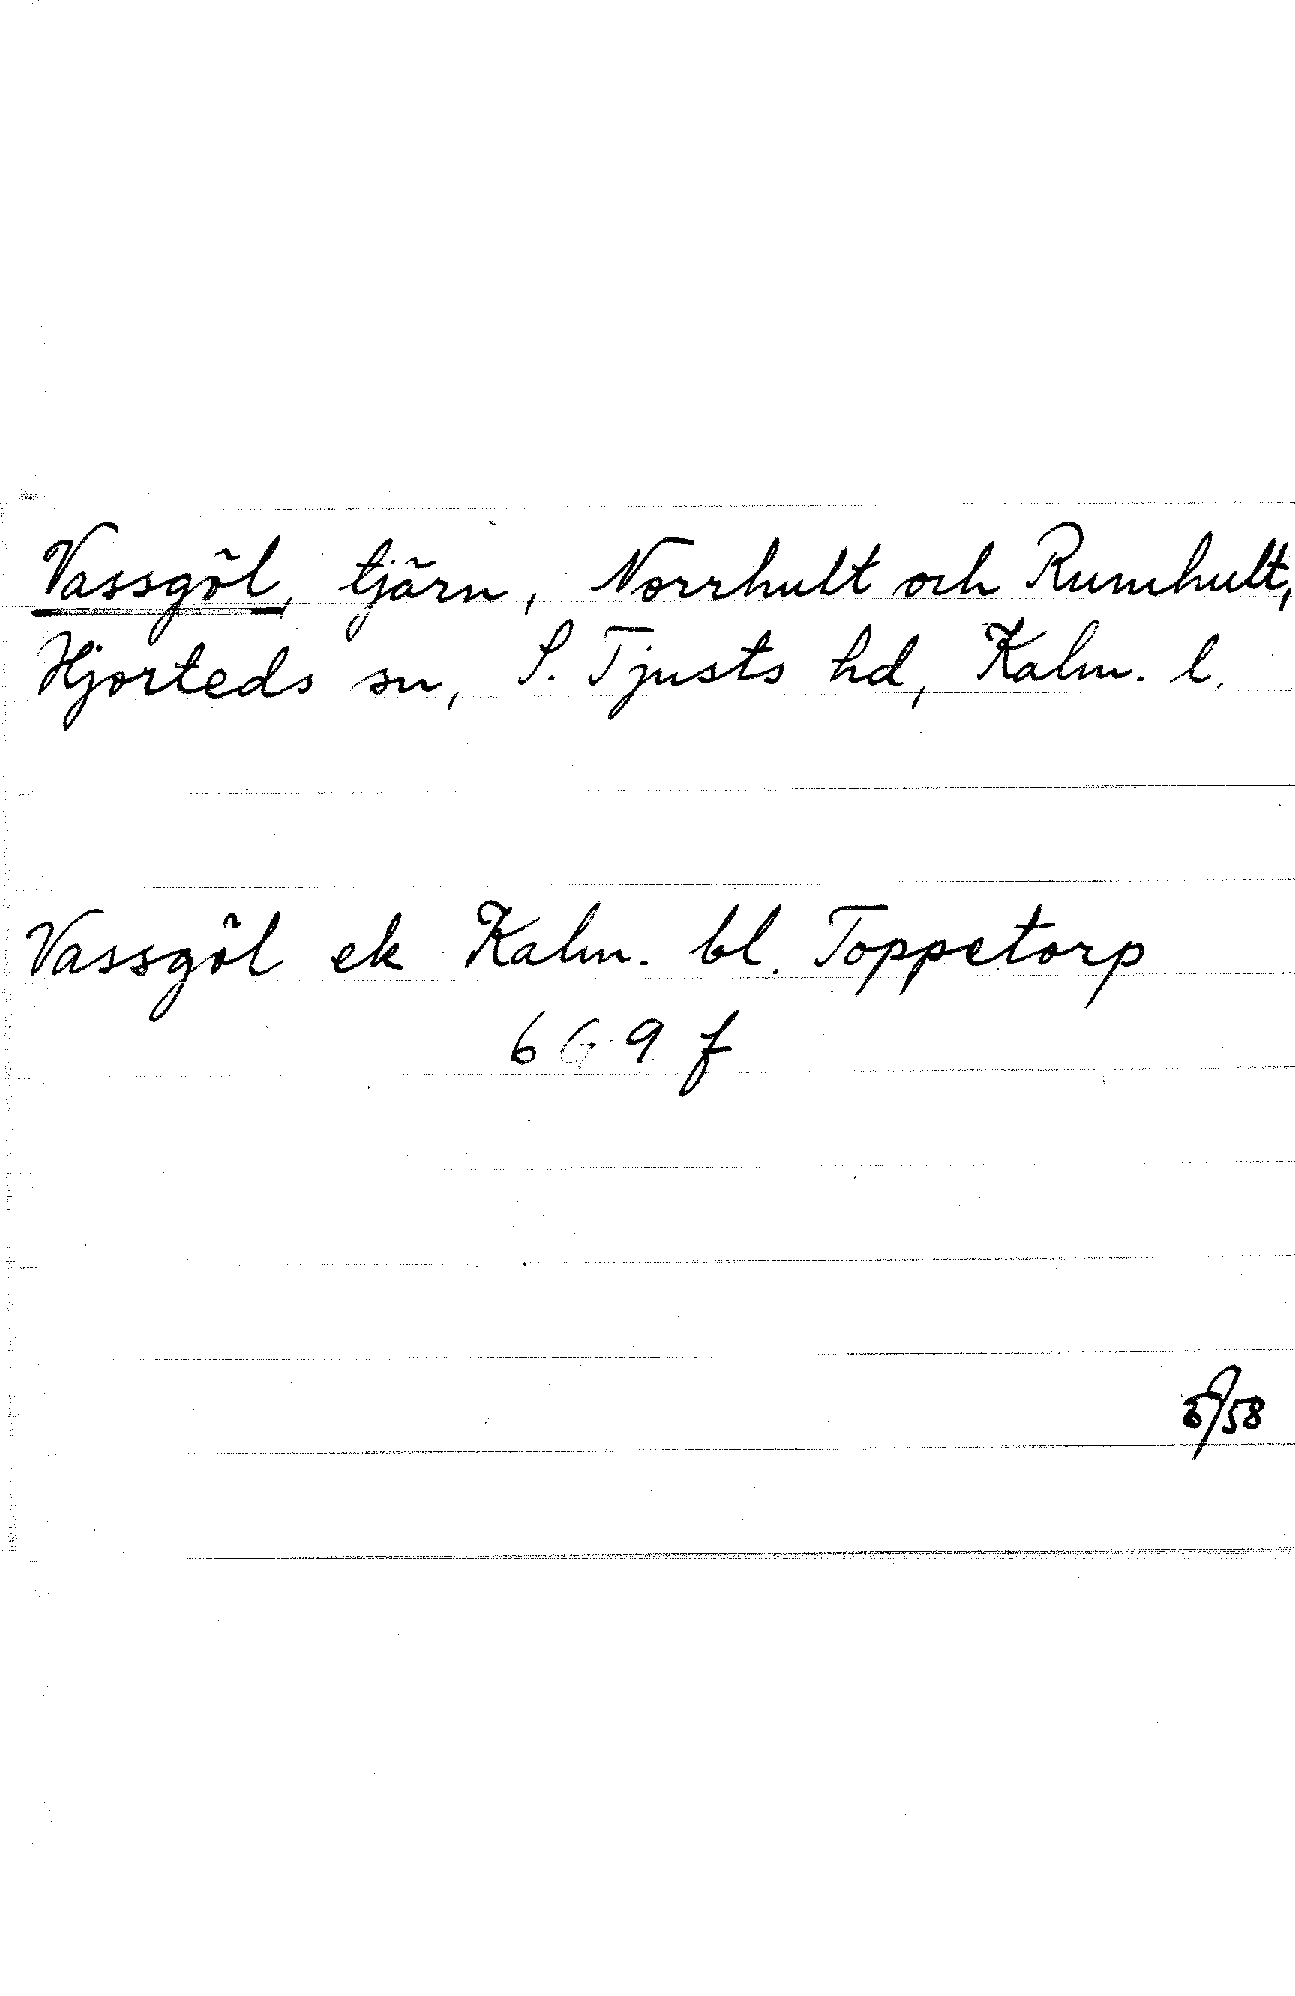 Vassgöl, tjärn, Norrhult och Rumhult,
Hjorteds sn, S. Tjusts hd, Kalm. l.
Vassgöl ek Kalm. bl. Toppetorp
6 G 9 f